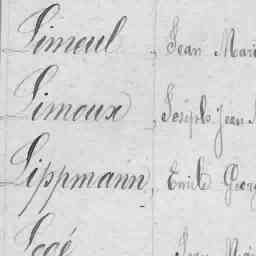 Limeul, Jean Mari
Limoux, Joseph Jean
Lippmann, Emile Georg
Logé Jean